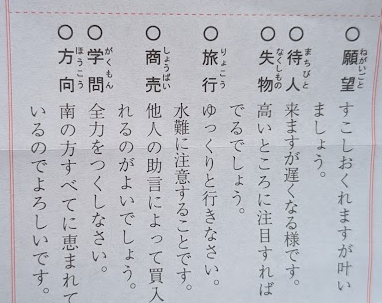 ○願望 ねがいごと すこしおくれますが叶い
ましょう。
○待人 まちびと 来ますが遅くなる様です。
○失物 なくしもの 高いところに注目すれば
でるでしょう。
○旅行 りょこう ゆっくりと行きなさい。
水難に注意することです。
○商売 しょうばい 他人の助言によって買入
れるのがよいでしょう。
○学問 がくもん 全力をつくしなさい。
○方向 ほうこう 南の方すべてに恵まれて
いるのでよろしいです。